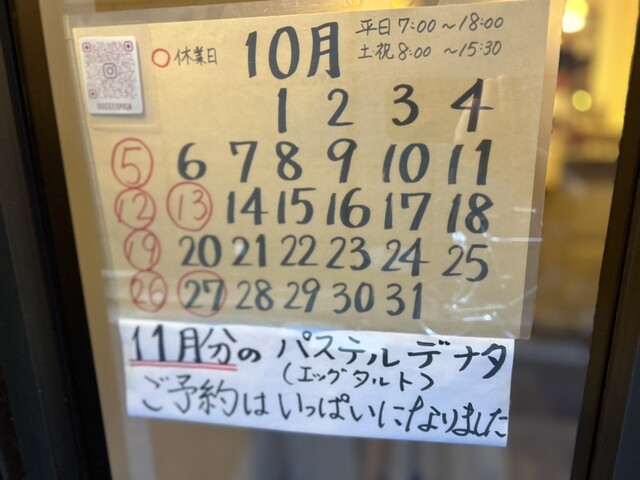 平日 7:00～18:00
○休業日 10月 土祝 8:00 ～15:30
DOCEESPIGA
1 2 3 4
5 6 7 8 9 10 11
12 13 14 15 16 17 18
19 20 21 22 23 24 25
26 27 28 29 30 31
11月分の パステルデナタ
(エッグタルト)
ご予約はいっぱいになりました